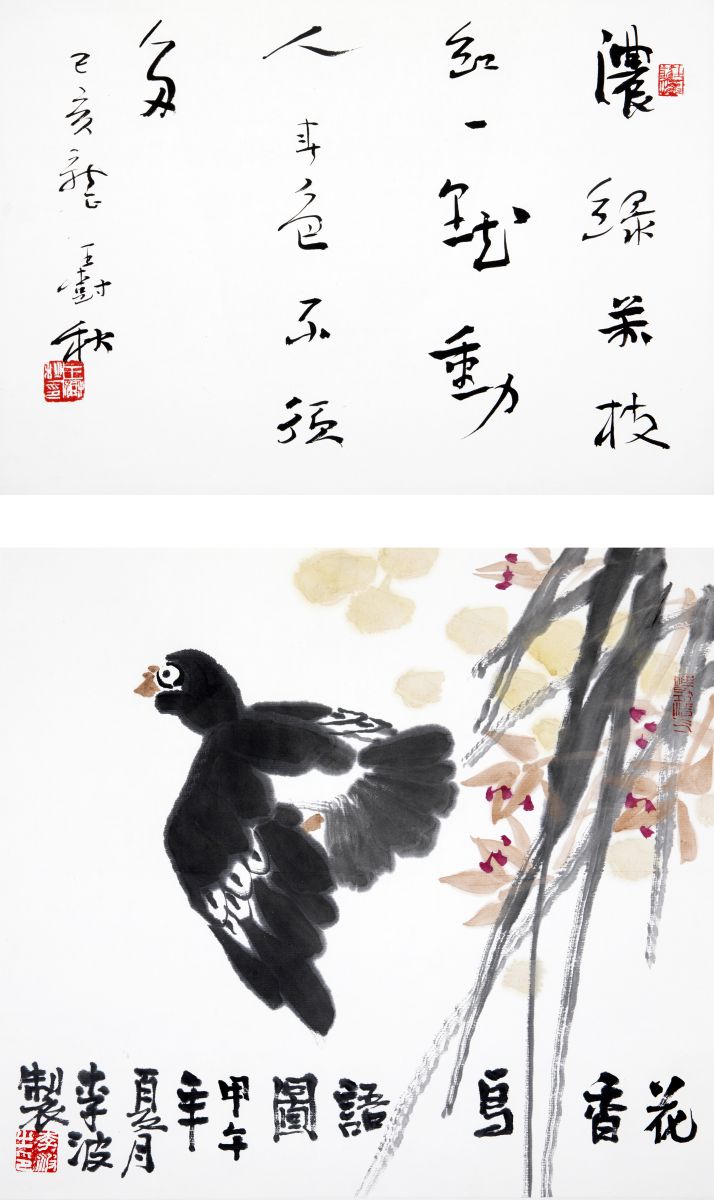 濃綠萬枝
紅一點動
人春色不須
多
己亥
花香鳥語圖 甲午年夏月李波製